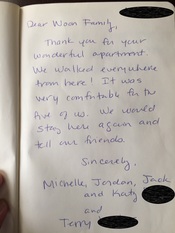 Dear Woon Family,
Thank you for your
wonderful apartment.
We walked everywhere
from here! It was
very comfortable for the
five of us. We would
stay here again and
tell our friends.
Sincerely,
Michelle, Jordan, Jack
and Katy
and
Terry